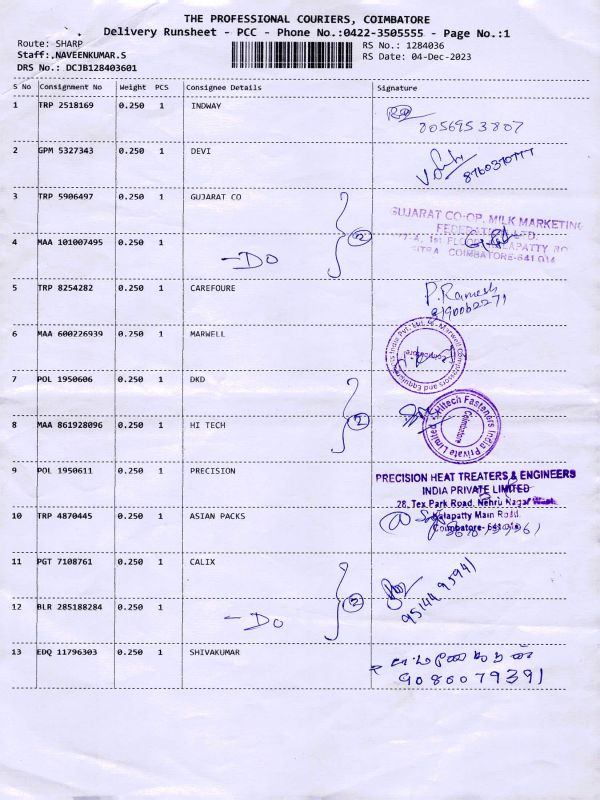 THE PROFESSIONAL COURIERS, COIMBATORE
Delivery Runsheet - PCC - Phone No.:0422-3505555 - Page No.:1
Route: SHARP
Staff:.NAVEENKUMAR.S
DRS No.: DCJB128403601
RS No.: 1284036
RS Date: 04-Dec-2023
S No Consignment No Weight PCS Consignee Details Signature
1 TRP 2518169 0.250 1 INDWAY
8056953807
2 GPM 5327343 0.250 1 DEVI
3 TRP 5906497 0.250 1 GUJARAT CO
2
GUJARAT CO-OP. MILK MARKETING
FEDERATION LTD.
1st FLOOR, KALAPATTY RO
SITRA COIMBATORE-641 014
4 MAA 101007495 0.250 1 - DO
5 TRP 8254282 0.250 1 CAREFOURE
P. Ramesh
8190062271
6 MAA 600226939 0.250 1 MARWELL
Marwell Compressors and Equipments India Pvt. Ltd.
Coimbatore
7 POL 1950606 0.250 1 DKD
2
8 MAA 861928096 0.250 1 HI TECH
Hitech Fasteners India Private Limited
Coimbatore
9 POL 1950611 0.250 1 PRECISION
PRECISION HEAT TREATERS & ENGINEERS
INDIA PRIVATE LIMITED
28, Tex Park Road, Nehru Nagar West,
Kalapatty Main Road
Coimbatore- 641 014
10 TRP 4870445 0.250 1 ASIAN PACKS
11 PGT 7108761 0.250 1 CALIX
2
95144 95941
12 BLR 285188284 0.250 1 - DO
13 EDQ 11796303 0.250 1 SHIVAKUMAR
9080079391